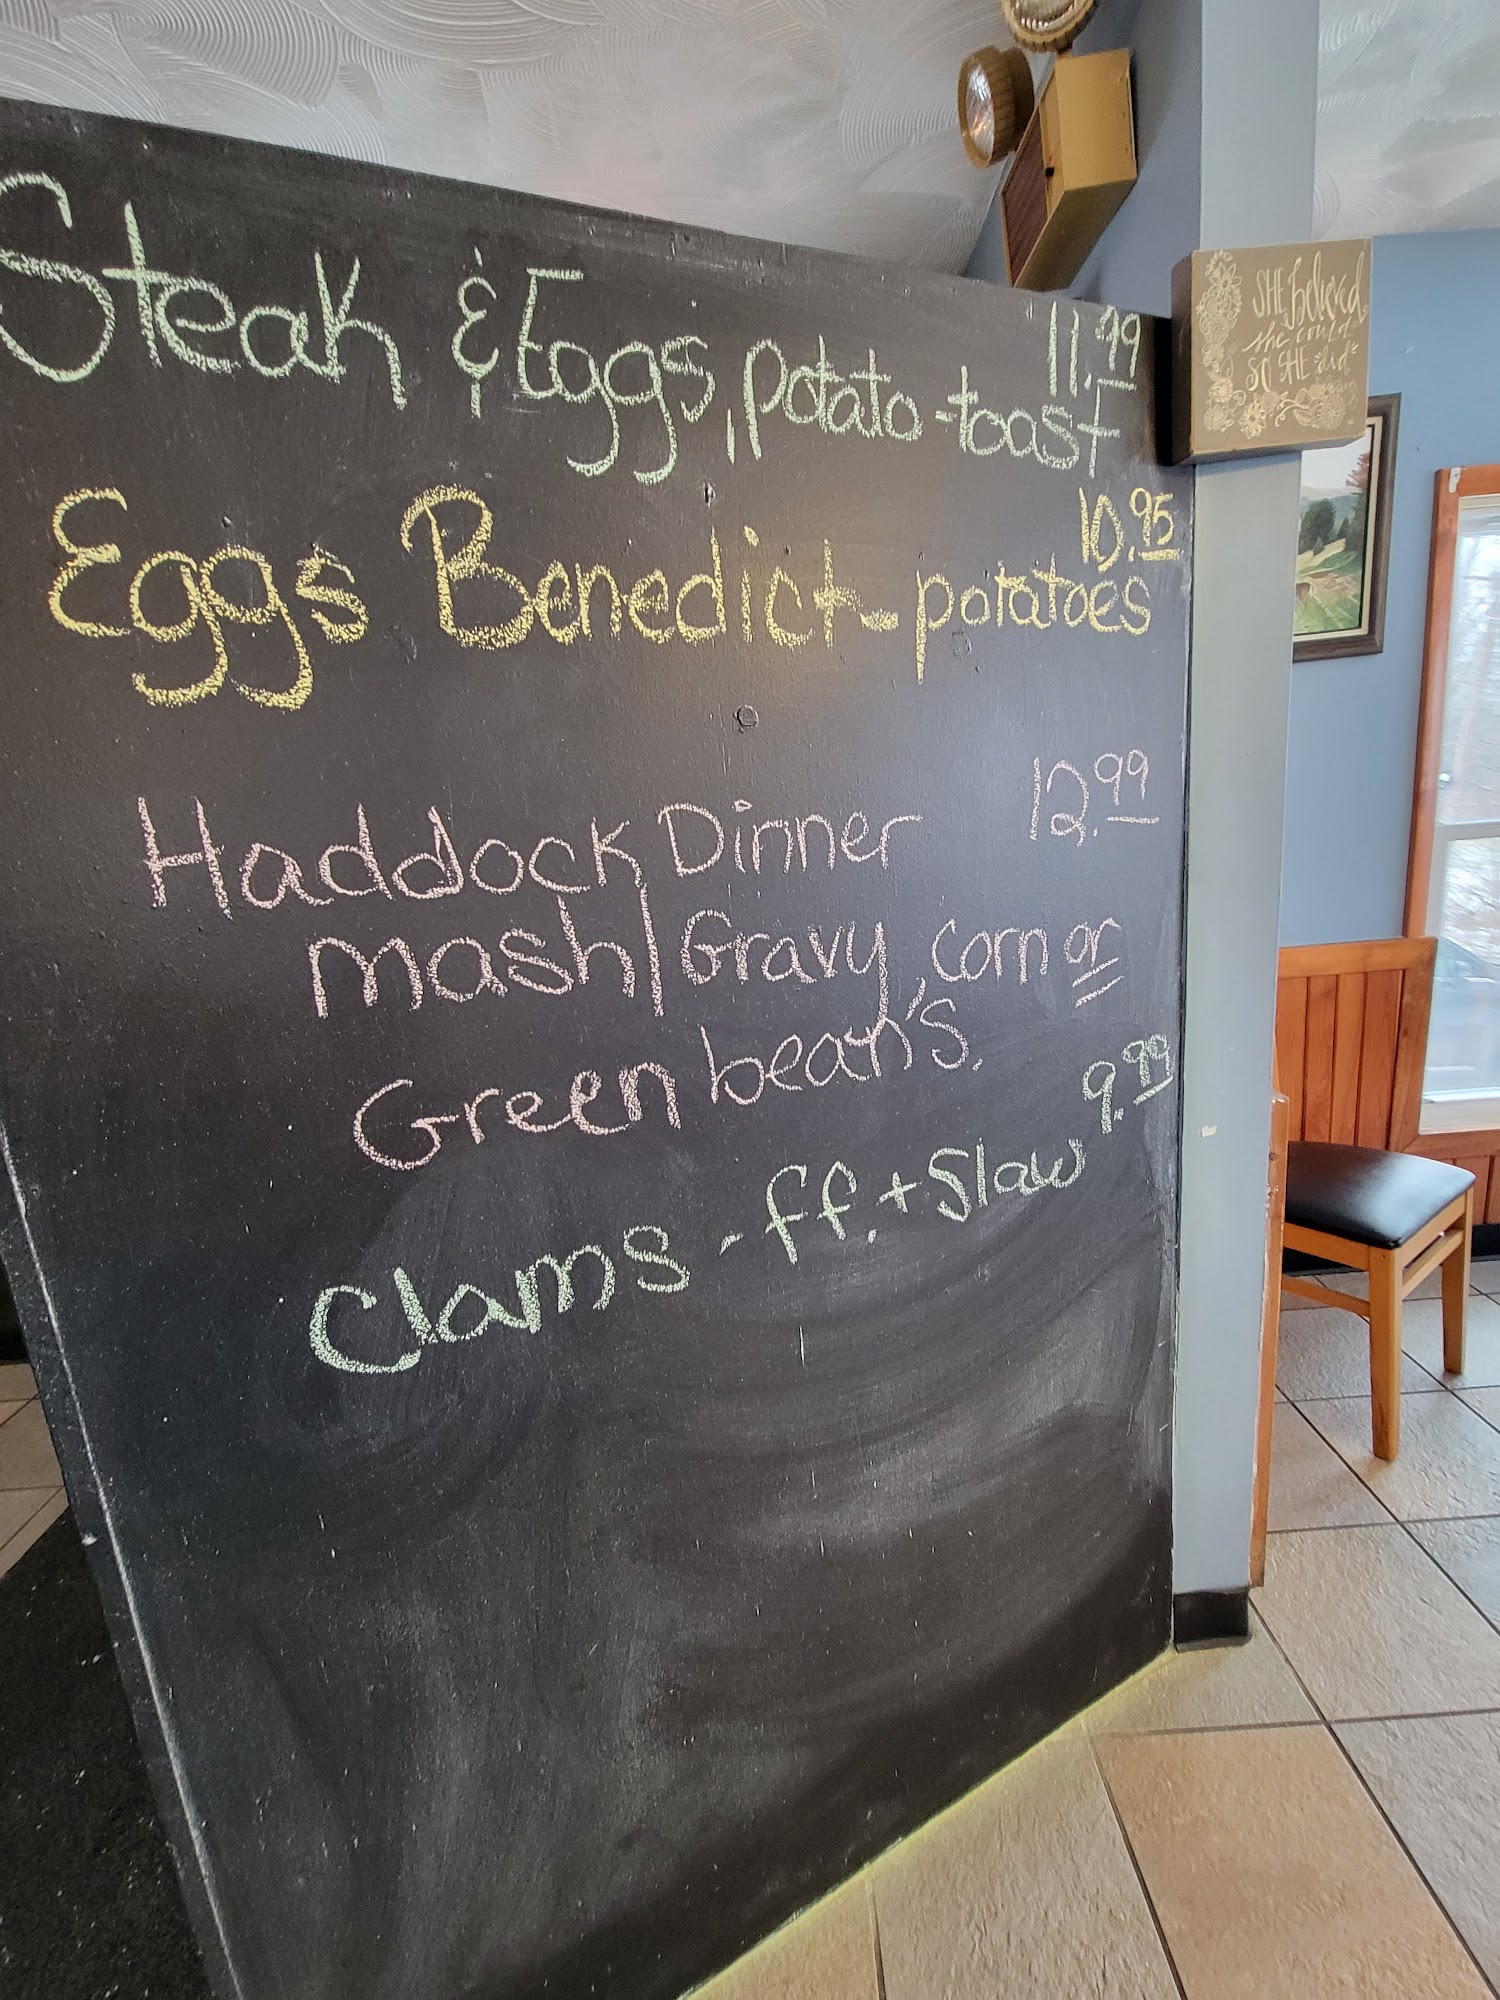 11.99
Steak & Eggs, potato-toast
10.95
Eggs Benedict-potatoes
Haddock Dinner 12.99
mash/Gravy, corn or
Green bean's.
9.99
Clams - ff. + Slaw
SHE believed
she could
SO SHE "did"